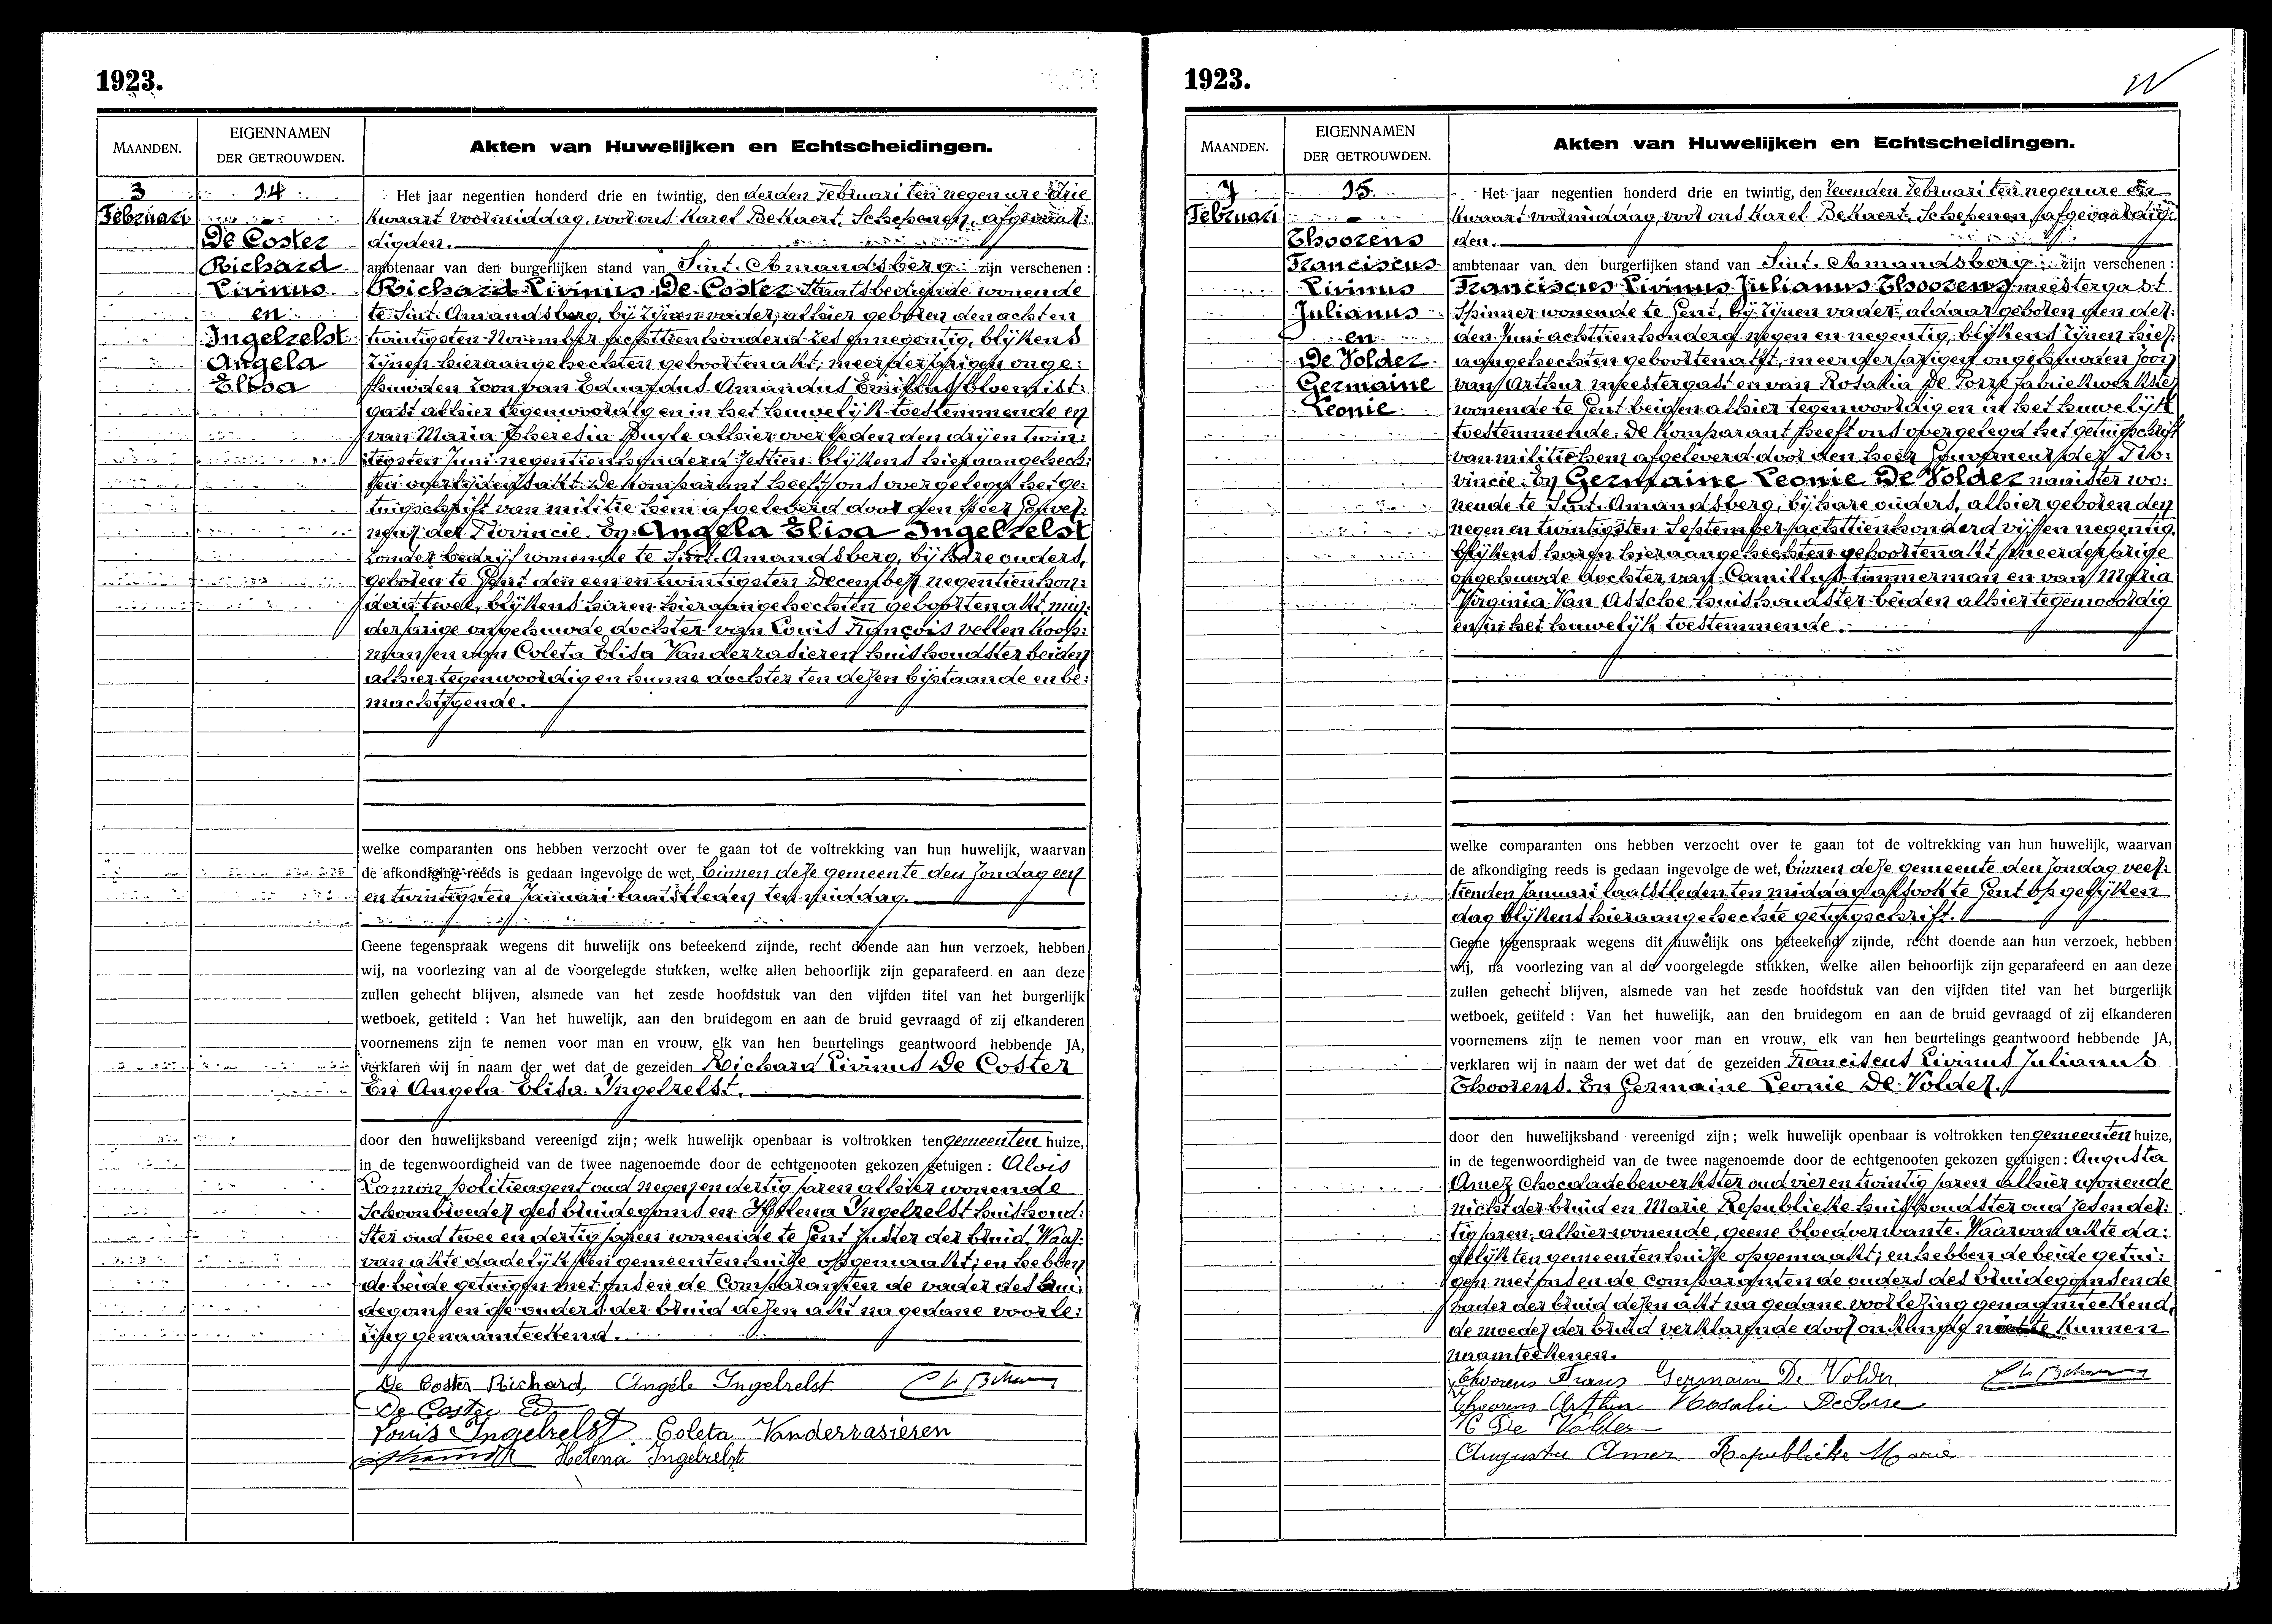 1923.
MAANDEN.
EIGENNAMEN
DER GETROUWDEN.
Akten van Huwelijken en Echtscheidingen.
3
Februari
14
De Coster
Richard
Livinus
en
Ingelrelst
Angela
Elisa
Het jaar negentien honderd drie en twintig, den derden Februari ten negen ure drie
kwaart voormiddag, voor ons Karel Bekaert, Schepenen, afgevaar:
digden.
ambtenaar van den burgerlijken stand van Sint. Amandsberg: zijn verschenen:
Richard Livinus De Coster Staatsbediende wonende
te Sint. Amandsberg, bij zijnen vader, alhier geboren den acht en
twintigsten November achttien honderd zes en negentig, blijkens
zijnen hieraangehechten geboortenakt, meerderjarigen onge:
huwden zoon van Eduardus Amandus Emilius bloemist:
gast alhier tegenwoordig en in het huwelijk toestemmende en
van Maria Theresia Buyle alhier overleden den drij en twin:
tigsten Juni negentien honderd zestien blijkens hieraangehech:
ten overlijdensakt. De Komparant heeft ons overgelegd het ge:
tuigschrift van militie hem afgeleverd door den heer Gouver:
neur der Provincie. En Angela Elisa Ingelrelst
zonder bedrijf wonende te Sint. Amandsberg, bij hare ouders,
geboren te Gent den een en twintigsten December negentien hon:
derd twee, blijkens haren hieraangehechten geboortenakt, min:
derjarige ongehuwde dochter van Louis François vellen koop:
man en van Coleta Elisa Vanderrasieren huishoudster beiden
alhier tegenwoordig en hunne dochter ten dezen bijstaande en be:
machtigende.
welke comparanten ons hebben verzocht over te gaan tot de voltrekking van hun huwelijk, waarvan
de afkondiging reeds is gedaan ingevolge de wet, binnen deze gemeente den Zondag een
en twintigsten Januari laatstleden ten middag.
Geene tegenspraak wegens dit huwelijk ons beteekend zijnde, recht doende aan hun verzoek, hebben
wij, na voorlezing van al de voorgelegde stukken, welke allen behoorlijk zijn geparafeerd en aan deze
zullen gehecht blijven, alsmede van het zesde hoofdstuk van den vijfden titel van het burgerlijk
wetboek, getiteld : Van het huwelijk, aan den bruidegom en aan de bruid gevraagd of zij elkanderen
voornemens zijn te nemen voor man en vrouw, elk van hen beurtelings geantwoord hebbende JA,
verklaren wij in naam der wet dat de gezeiden Richard Livinus De Coster
En Angela Elisa Ingelrelst.
door den huwelijksband vereenigd zijn; welk huwelijk openbaar is voltrokken ten gemeenten huize,
in de tegenwoordigheid van de twee nagenoemde door de echtgenooten gekozen getuigen : Alois
Lamon politieagent oud negen en dertig jaren alhier wonende
Schoonbroeder des bruidegoms en Helena Ingelrelst huishoud:
ster oud twee en dertig jaren wonende te Gent zuster der bruid. Waar:
van akte dadelijk ten gemeentenhuize opgemaakt; en hebben
de beide getuigen met ons en de Comparanten de vader des brui:
degoms en de ouders der bruid dezen akt na gedane voorle:
zing genaamteekend.
De Coster Richard, Angèle Ingelrelst
De Coster Ed
Louis Ingelrelst Coleta Vanderrasieren
Helena Ingelrelst
1923.
MAANDEN.
EIGENNAMEN
DER GETROUWDEN.
Akten van Huwelijken en Echtscheidingen.
7
Februari
15.
Thoorens
Franciscus
Livinus
Julianus
en
De Volder
Germaine
Leonie
Het jaar negentien honderd drie en twintig, den zevenden Februari ten negen ure een
kwaart voormiddag, voor ons Karel Bekaert, Schepenen, afgevaardig:
den.
ambtenaar van den burgerlijken stand van Sint. Amandsberg: zijn verschenen :
Franciscus Livinus Julianus Thoorens meestergast
spinner wonende te Gent, bij zijnen vader, aldaar geboren den der:
den Juni achttien honderd negen en negentig, blijkens zijnen hier:
aangehechten geboortenakt, meerderjarigen ongehuwden zoon
van Arthur meestergast en van Rosalia De Porre fabriekwerkster
wonende te Gent beiden alhier tegenwoordig en in het huwelijk
toestemmende. De Komparant heeft ons overgelegd het getuigschrift
van militie hem afgeleverd door den heer Gouverneur der Pro:
vincie. En Germaine Leonie De Volder naaister wo:
nende te Sint. Amandsberg, bij hare ouders, alhier geboren den
negen en twintigsten September achttien honderd vijf en negentig,
blijkens haren hieraangehechten geboortenakt meerderjarige
ongehuwde dochter van Camillus timmerman en van Maria
Virginia Van Assche huishoudster beiden alhier tegenwoordig
en in het huwelijk toestemmende.
welke comparanten ons hebben verzocht over te gaan tot de voltrekking van hun huwelijk, waarvan
de afkondiging reeds is gedaan ingevolge de wet, binnen deze gemeente den Zondag veer:
tienden Januari laatstleden ten middag alsook te Gent op gelijken
dag blijkens hieraangehechte getuigschrift.
Geene tegenspraak wegens dit huwelijk ons beteekend zijnde, recht doende aan hun verzoek, hebben
wij, na voorlezing van al de voorgelegde stukken, welke allen behoorlijk zijn geparafeerd en aan deze
zullen gehecht blijven, alsmede van het zesde hoofdstuk van den vijfden titel van het burgerlijk
wetboek, getiteld : Van het huwelijk, aan den bruidegom en aan de bruid gevraagd of zij elkanderen
voornemens zijn te nemen voor man en vrouw, elk van hen beurtelings geantwoord hebbende JA,
verklaren wij in naam der wet dat de gezeiden Franciscus Livinus Julianus
Thoorens. En Germaine Leonie De Volder.
door den huwelijksband vereenigd zijn; welk huwelijk openbaar is voltrokken ten gemeenten huize,
in de tegenwoordigheid van de twee nagenoemde door de echtgenooten gekozen getuigen : Augusta
Amez chocoladebewerkster oud vier en twintig jaren alhier wonende
nicht der bruid en Marie Republieke huishoudster oud zes en der:
tig jaren, alhier wonende, geene bloedverwante. Waarvan akte da:
delijk ten gemeentenhuize opgemaakt; en hebben de beide getui:
gen met ons en de comparanten de ouders des bruidegoms en de
vader der bruid dezen akt na gedane voorlezing genaamteekend,
de moeder der bruid verklarende door onkunde niet te kunnen
naamteekenen.
Thoorens Frans Germaine De Volder
Thoorens Arthur Rosalie De Porre
De Volder
Augusta Amez Republieke Marie